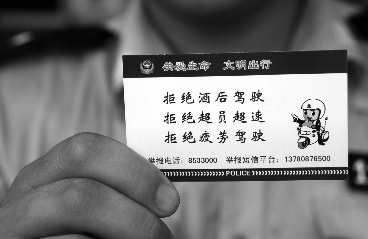 关爱生命 文明出行
拒绝酒后驾驶
拒绝超员超速
拒绝疲劳驾驶
举报电话：8533000 举报短信平台：13780876500
POLICE